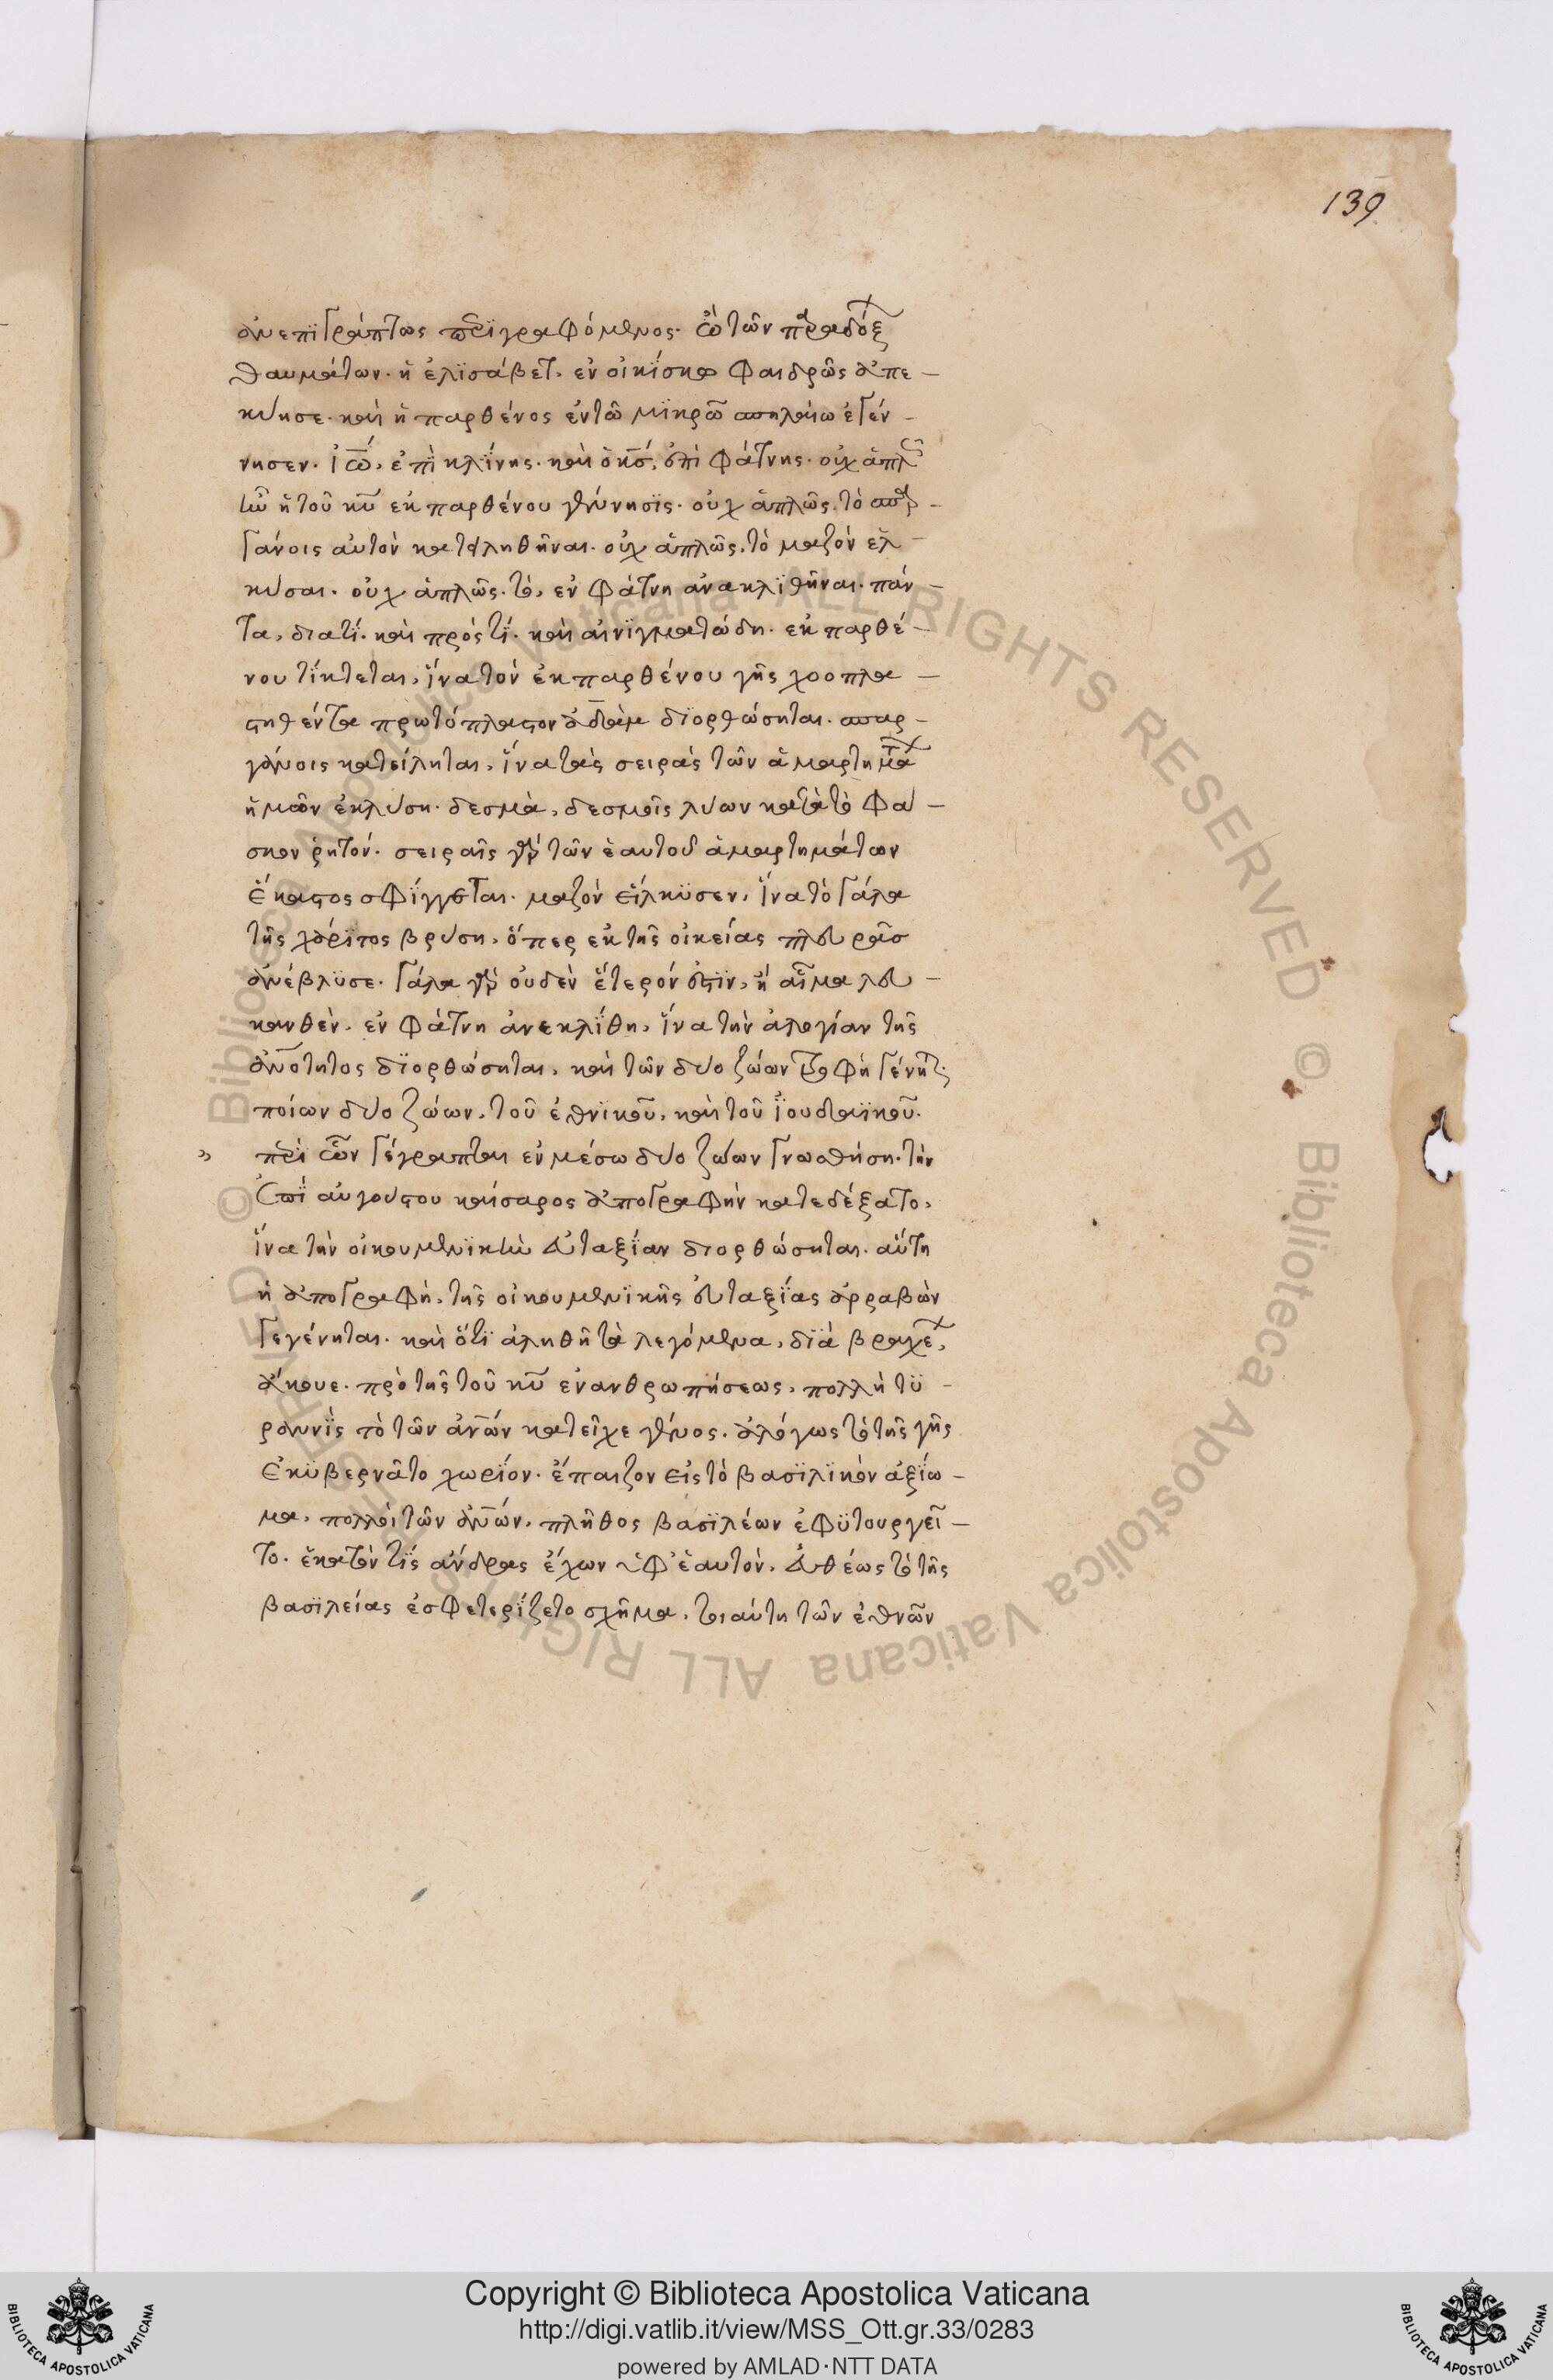 139
ἀνεπϊγράπτως περϊγραφόμενος. ὢ τῶν παραδόξ
θαυμάτων. ἡ ἐλϊσάβετ, ἐν οἰκΐσκω φαιδρῶς ἀπε-
κύησε. καὶ ἡ παρθένος ἐν τῶ μϊκρῶ σπηλαίω ἐγέν-
νησεν. ἰῶ, ἐπὶ κλΐνης. καὶ ὁ κς, ἐπὶ φάτνης. οὐχ ἁπλ
ἦν ἡ τοῦ κυ ἐκ παρθένου γέννησϊς. οὐχ ἁπλῶς, τὸ σπαρ-
γάνοις αὐτὸν κατειληθῆναι. οὐχ ἁπλῶς, τὸ μαζὸν ἑλ-
κύσαι. οὐχ ἁπλῶς. τὸ, ἐν φάτνη ἀνακλϊθῆναι. πάν-
τα, διατί. καὶ πρὸς τί. καὶ αἰνϊγματώδη. ἐκ παρθέ-
νου τίκτεται, ἵνα τὸν ἐκ παρθένου γῆς χοοπλα-
στηθέντα πρωτόπλαστον ἀδὰμ δϊορθώσηται. σπαρ-
γάνοις κατείληται, ἵνα τὰς σειρὰς τῶν ἁμαρτημά
ἡμῶν ἐκλύση. δεσμὰ, δεσμοῖς λύων κατὰ τὸ φά-
σκον ῥητόν. σειραῖς γὰρ τῶν ἑαυτοῦ ἁμαρτημάτων
ἕκαστος σφίγγεται. μαζὸν εἵλκϋσεν, ἵνα τὸ γάλα
τῆς χάρϊτος βρύση, ὅπερ ἐκ τῆς οἰκείας πλευρᾶσ
ἀνέβλϋσε. γάλα γὰρ οὐδὲν ἕτερόν ἐστϊν, ἢ αἷμα λευ-
κανθέν. ἐν φάτνη ἀνεκλΐθη, ἵνα τὴν ἀλογίαν τῆς
ἀνότητος δϊορθώσηται, καὶ τῶν δύο ζώων τροφὴ γένητ.
ποίων δύο ζώων, τοῦ ἐθνϊκοῦ, καὶ τοῦ ἰουδαϊκοῦ.
» περὶ ὧν γέγραπται ἐν μέσω δύο ζώων γνωσθήση. τὴν
ἐπὶ αὐγούστου καίσαρος ἀπογραφὴν κατεδέξατο,
ἵνα τὴν οἰκουμενϊκὴν εὐταξΐαν διορθώσηται. αὕτη
ἡ ἀπογραφὴ, τῆς οἰκουμενϊκῆς εὐταξΐας ἀρραβὼν
γεγένηται. καὶ ὅτϊ ἀληθῆ τὰ λεγόμενα, δϊὰ βραχέ,
ἄκουε. πρὸ τῆς τοῦ κυ ἐνανθρωπήσεως, πολλὴ τϋ-
ραννὶς τὸ τῶν ἀνων κατεῖχε γένος. ἀλόγως τὸ τῆς γῆς
ἐκϋβερνᾶτο χωρΐον. ἔπαιζον εἰς τὸ βασϊλϊκὸν ἀξΐω-
μα, πολλοὶ τῶν ἀνων. πλῆθος βασϊλέων ἐφϋτουργεῖ-
το. ἑκατόν τϊς ἄνδρας ἔχων ὑφ' ἑαυτὸν, εὐθέως τὸ τῆς
βασϊλείας ἐσφετερΐζετο σχῆμα. τοιαύτη τῶν ἐθνῶν
ALL RIGHTS RESERVED © Biblioteca Apostolica Vaticana
Copyright © Biblioteca Apostolica Vaticana
http://digi.vatlib.it/view/MSS_Ott.gr.33/0283
powered by AMLAD·NTT DATA
BIBLIOTECA APOSTOLICA VATICANA
BIBLIOTECA APOSTOLICA VATICANA